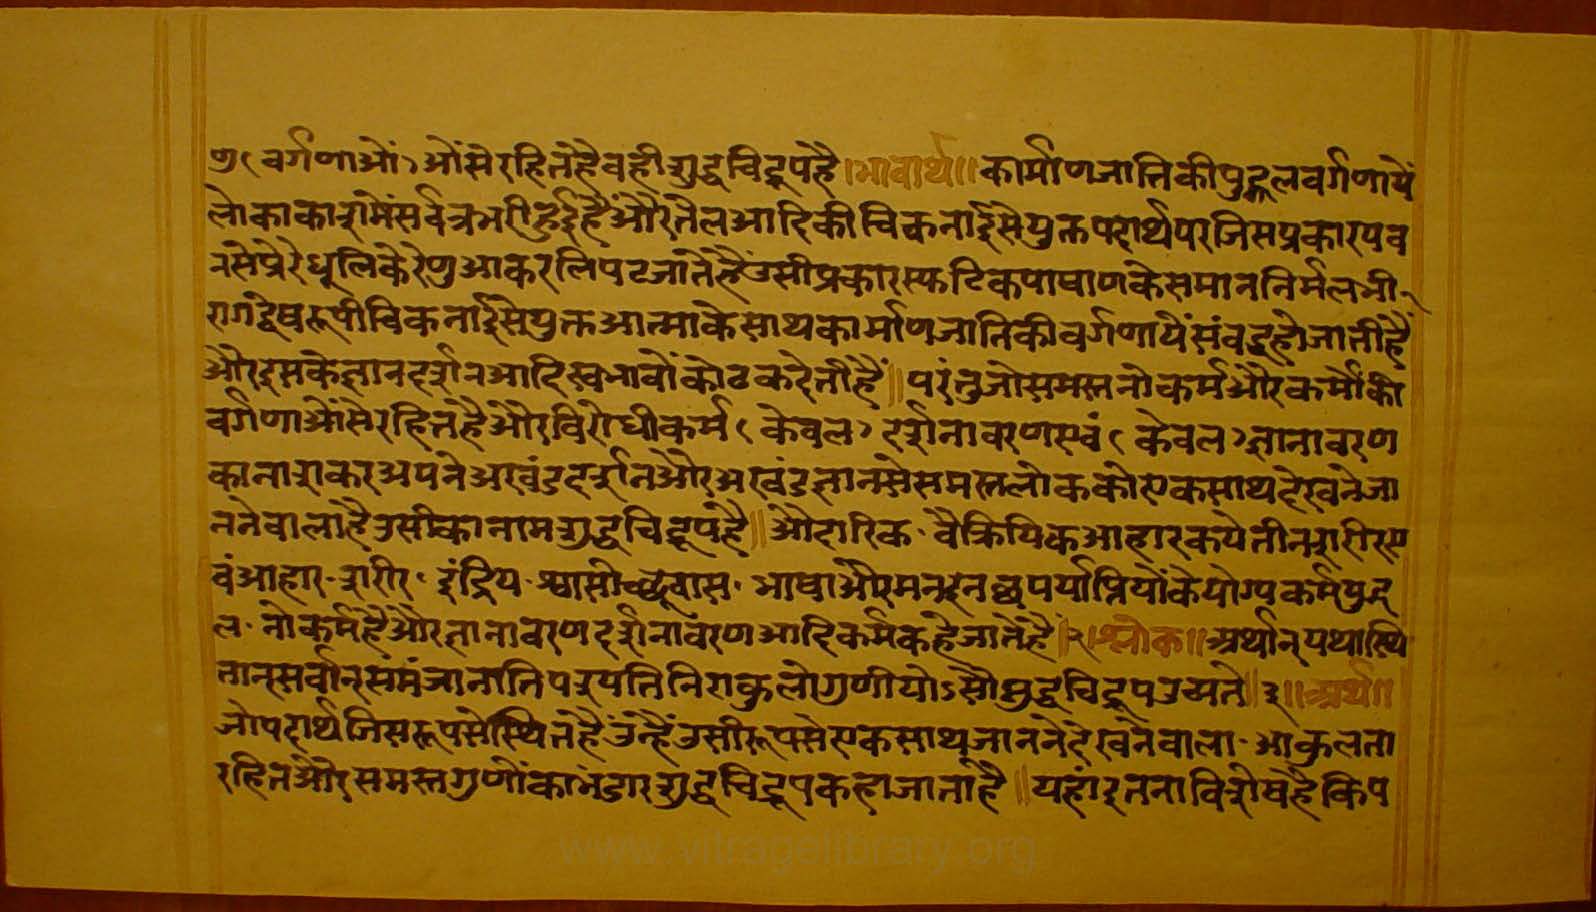 ण ( वर्गणाओं ) ओंसे रहित है वही शुद्धचिद्रूप है । भावार्थ ।। कार्माण जाति की पुद्गल वर्गणायें
लोकाकाश में सर्वत्र भरी हुई हैं और तैल आदि की चिकनाई से युक्त पदार्थ पर जिस प्रकार पव
न से प्रेरे धूलि के रेणु आकर लिपट जाते हैं उसी प्रकार स्फटिक पाषाण के समान निर्मल भी
राग द्वेष रूपी चिकनाई से युक्त आत्मा के साथ कार्माण जाति की वर्गणायें संवद्ध हो जाती हैं
और इसके ज्ञान दर्शन आदि स्वभावों को ढक देती हैं ।। परंतु जो समस्त नो कर्म और कर्मों की
वर्गणाओं से रहित है और विरोधी कर्म ( केवल ) दर्शनावरण एवं ( केवल ) ज्ञानावरण
का नाश कर अपने अखंड दर्शन और अखंड ज्ञान से समस्त लोक को एक साथ देखने जा
नने वाला है उसी का नाम शुद्धचिद्रूप है ।। औदारिक वैक्रियिक आहारक ये तीन शरीर ए
वं आहार शरीर इंद्रिय श्वासोच्छ्वास भाषा और मन इन छ पर्याप्तियों के योग्य कर्म पुद्ग
ल नो कर्म हैं और ज्ञानावरण दर्शनावरण आदि कर्म कहे जाते हैं । २ । श्लोक ।। अर्थान् यथास्थि
तान् सर्वान् समं जानाति पश्यति निराकुलो गुणी योऽसौ शुद्धचिद्रूप उच्यते ।। ३ ।। अर्थ ।।
जो पदार्थ जिस रूप से स्थित हैं उन्हैं उसी रूप से एक साथ जानने देखने वाला आकुलता
रहित और समस्त गुणों का भंडार शुद्धचिद्रूप कहा जाता है ।। यहां इतना विशेष है कि प
www.vitragelibrary.org